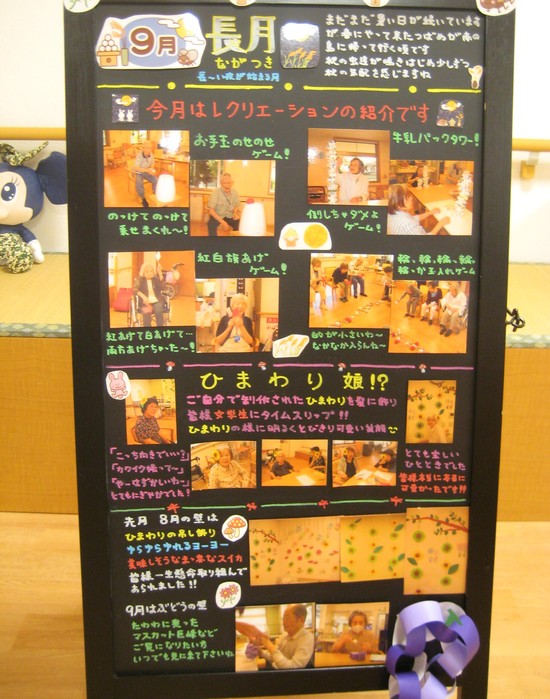 9月
長月
ながつき
長〜い夜が始まる月
まだまだ暑い日が続いています
が春にやって来たつばめが南の
島に帰って行く頃です
秋の虫達が鳴きはじめ少しずつ
秋の気配を感じますね
今月はレクリエーションの紹介です
お手玉のせのせ
ゲーム!
のっけて のっけて
乗せまくれ〜!
牛乳パックタワー!
倒しちゃダメよ
ゲーム!
紅白旗あげ
ゲーム!
紅あげて白あげて…
両方あげちゃった〜!
輪、輪、輪、輪、
輪っか玉入れゲーム
的が小さいわ〜
なかなか入らんね〜
ひまわり 娘!?
ご自分で制作されたひまわりを髪に飾り
皆様女学生にタイムスリップ!!
ひまわりの様に明るくとびきり可愛い笑顔
「こっち向きでいい?」
「カワイク撮って〜」
「や〜はずかしいわ〜」
とてもにぎやかでした!
とても楽しい
ひとときでした
皆様本当に本当に
可愛かったです!!
先月 8月の壁は
ひまわりの吊し飾り
ゆらゆらゆれるヨーヨー
美味しそうなまっ赤なスイカ
皆様一生懸命取り組んで
おられました!!
9月はぶどうの壁
たわわに実った
マスカット巨峰など
ご覧になりたい方
いつでも見に来て下さいね